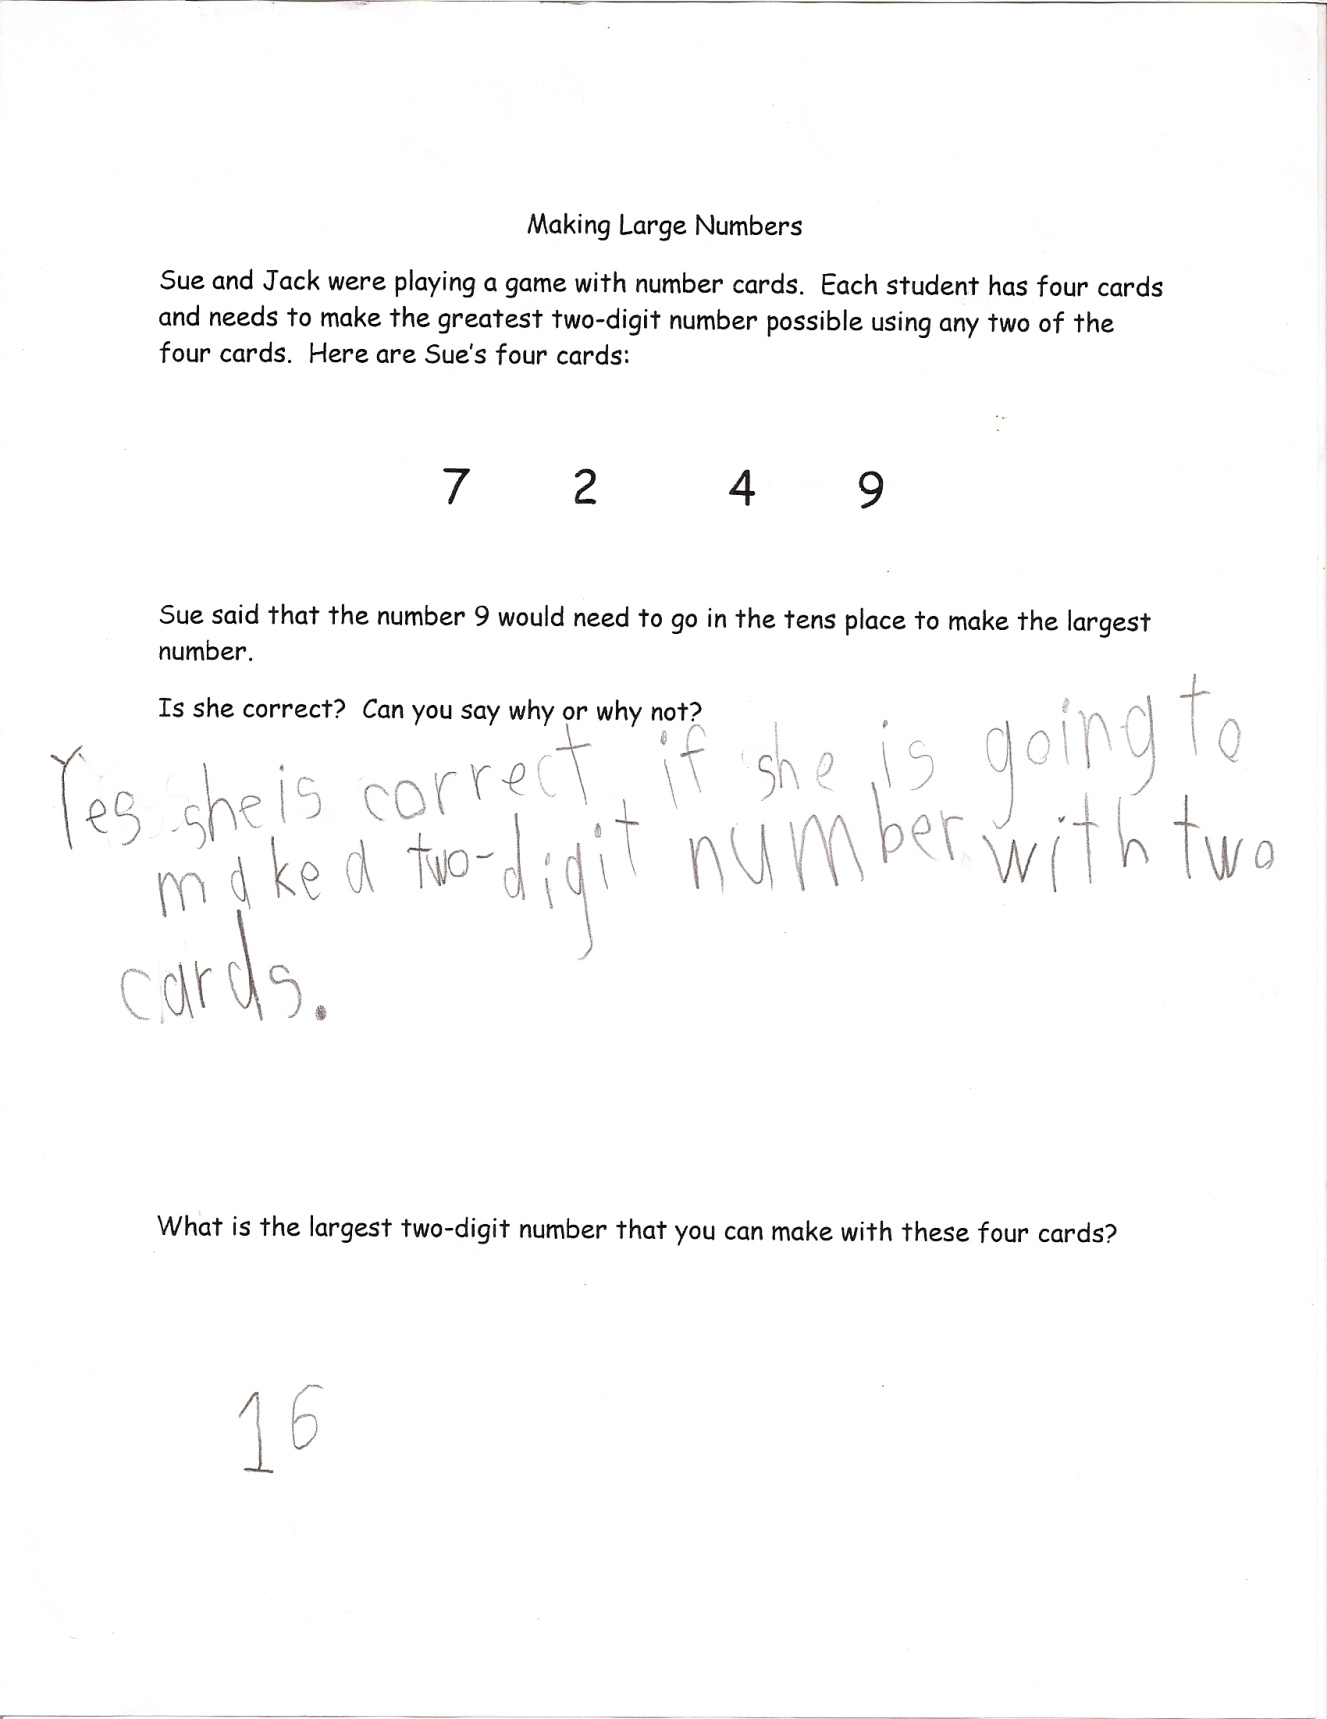 Making Large Numbers
Sue and Jack were playing a game with number cards. Each student has four cards
and needs to make the greatest two-digit number possible using any two of the
four cards. Here are Sue's four cards:
7 2 4 9
Sue said that the number 9 would need to go in the tens place to make the largest
number.
Is she correct? Can you say why or why not?
Yes she is correct if she is going to
make a two-digit number with two
cards.
What is the largest two-digit number that you can make with these four cards?
16